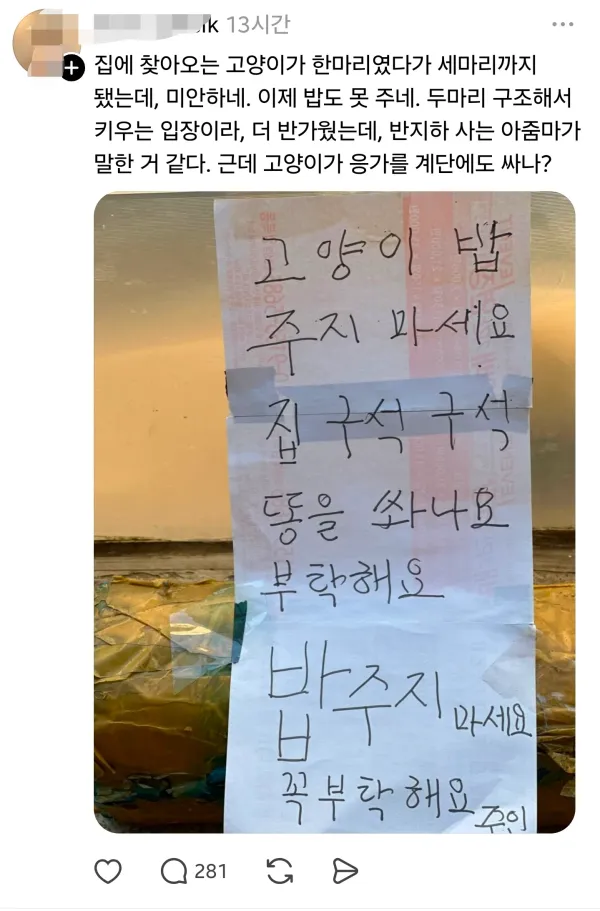 13시간
집에 찾아오는 고양이가 한마리였다가 세마리까지
됐는데, 미안하네. 이제 밥도 못 주네. 두마리 구조해서
키우는 입장이라, 더 반가웠는데, 반지하 사는 아줌마가
말한 거 같다. 근데 고양이가 응가를 계단에도 싸나?
고양이 밥
주지 마세요
집 구석 구석
똥을 쏴나요
부탁해요
밥주지 마세요
꼭부탁해요 주인
281